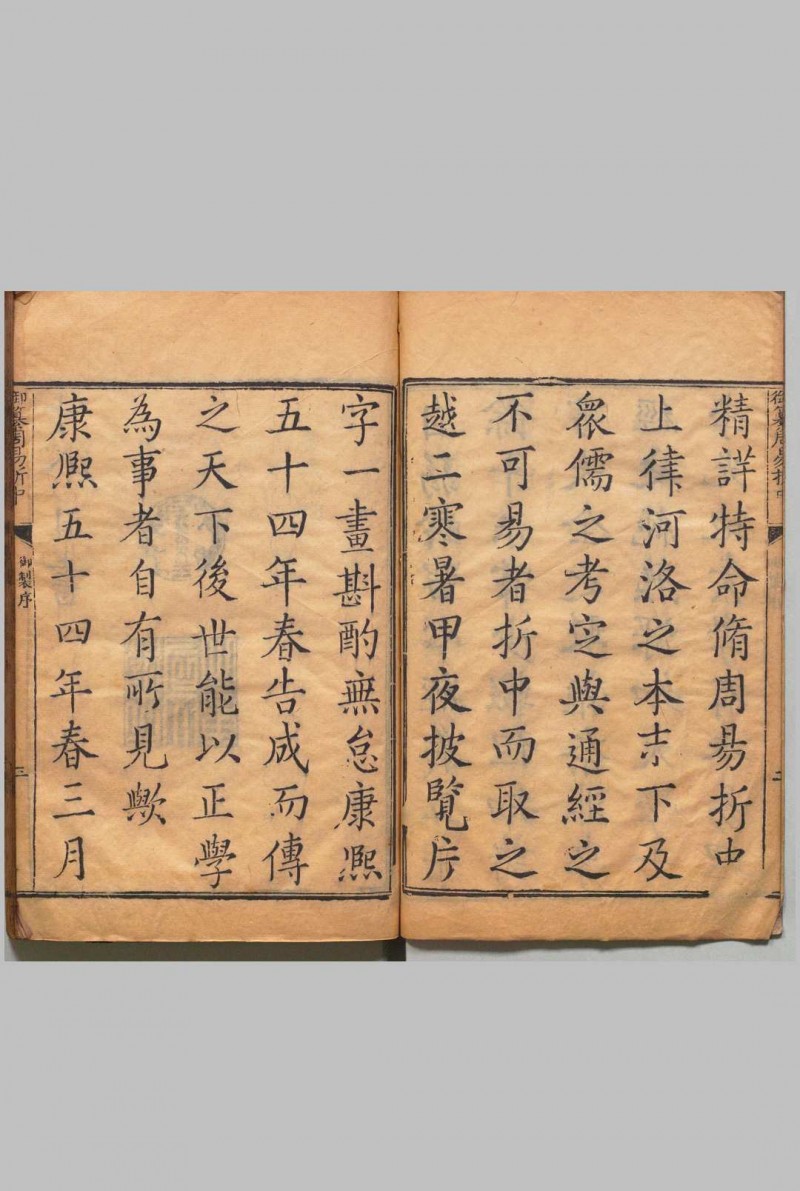 御纂周易折中
二
精詳特命脩周易折中
上律河洛之本末下及
眾儒之考定與通經之
不可易者折中而取之
越二寒暑甲夜披覽片
字一畫斟酌無怠康熙
五十四年春告成而傳
之天下後世能以正學
為事者自有所見歟
康熙五十四年春三月
御纂周易折中
御製序
三